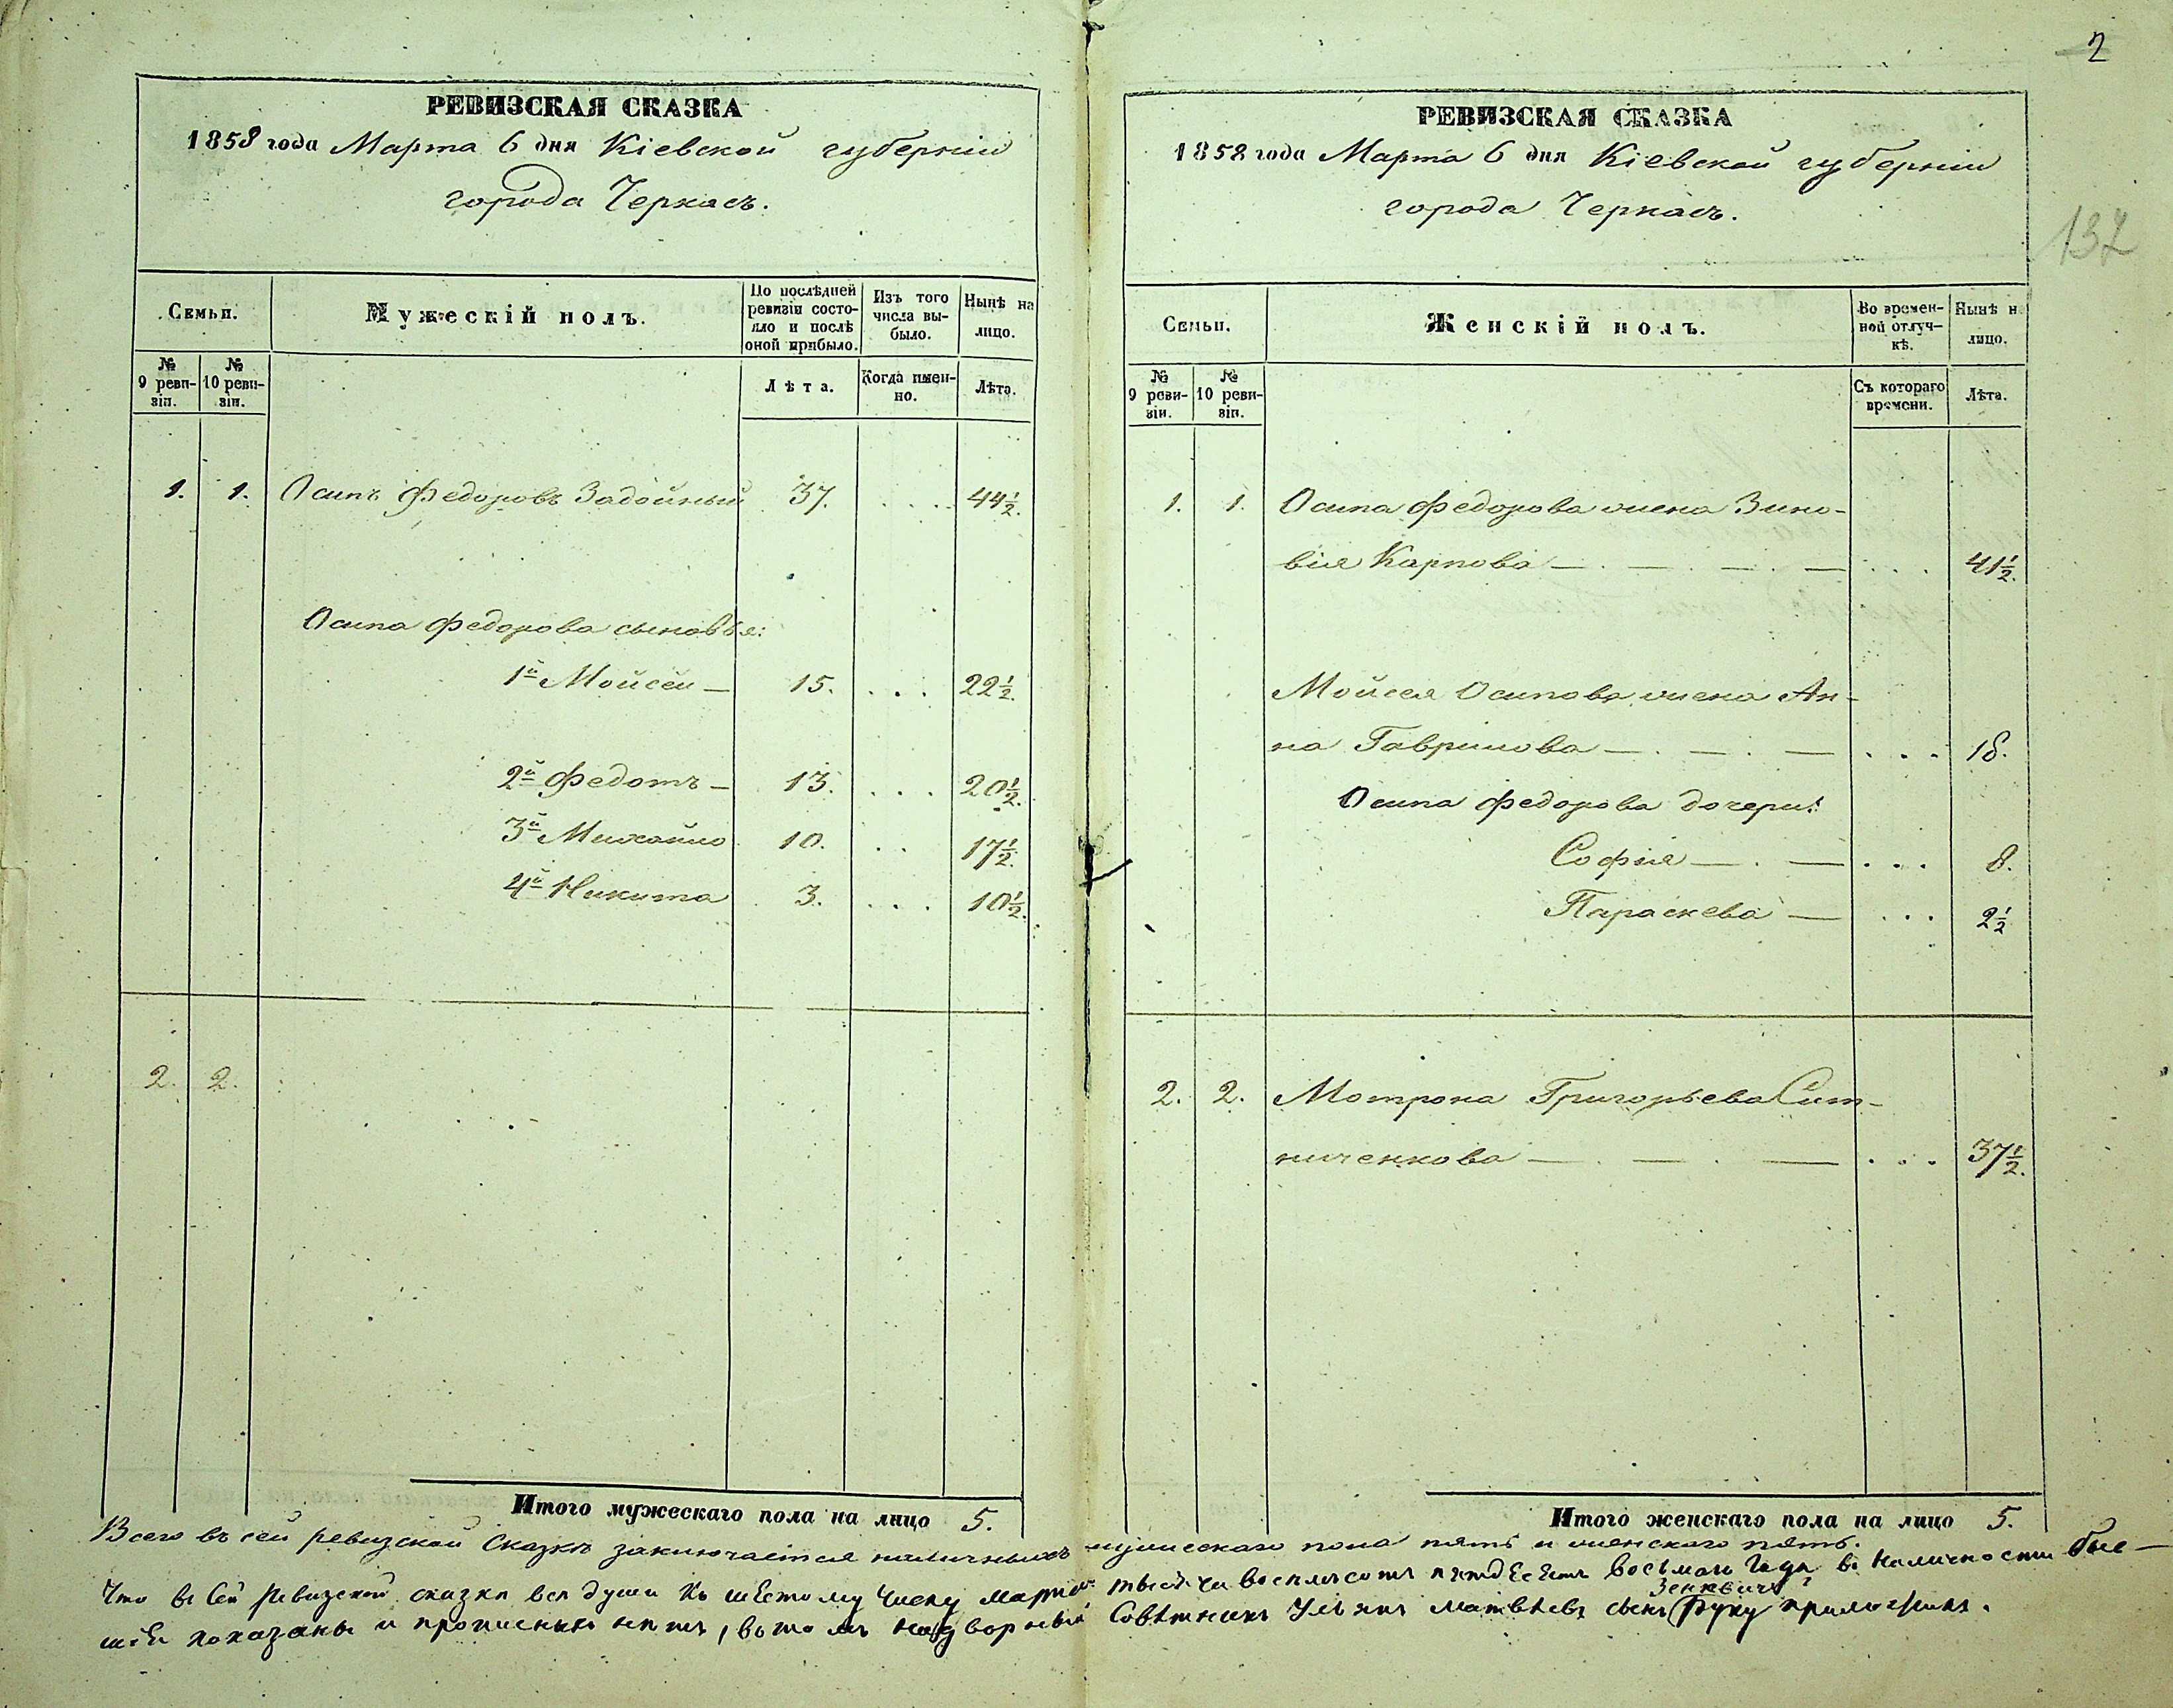 РЕВИЗСКАЯ СКАЗКА
1858 года Марта 6 дня Кіевской губерніи
города Черкасъ.
Семьи.
Мужескій полъ.
По послѣдней ревизіи состояло и послѣ оной прибыло.
Изъ того числа выбыло.
Нынѣ на лицо.
№ 9 ревизіи.
№ 10 ревизіи.
Лѣта.
Когда именно.
Лѣта.
1. 1. Осипъ Федоровъ Задойный 37. .... 44½.
Осипа Федорова сыновья:
1й Мойсей — 15. ... 22½.
2й Федотъ — 13. ... 20½.
3й Михайло 10. .. 17½.
4й Никита 3. ... 10½.
2. 2.
Итого мужескаго пола на лицо 5.
2
132
РЕВИЗСКАЯ СКАЗКА
1858 года Марта 6 дня Кіевской губерніи
города Черкасъ.
Семьи.
Женскій полъ.
Во временной отлучкѣ.
Нынѣ на лицо.
№ 9 ревизіи.
№ 10 ревизіи.
Съ котораго времени.
Лѣта.
1. 1. Осипа Федорова жена Зино-
вія Карпова — . — . — . — ... 41½.
Мойсея Осипова жена Ан-
на Гаврилова — . — . — ... 18.
Осипа Федорова дочери:
Софія — . — ... 8.
Параскева — ... 2½
2. 2. Мотрона Григорьева Сит-
ниченкова — . — . — ... 37½.
Итого женскаго пола на лицо 5.
Всего въ сей ревизской Сказкѣ заключается наличныхъ мужескаго пола пять и женскаго пять.
Что въ сей Ревизской сказки вся души къ шестому числу марта тысяча восемьсотъ пятдесятъ восьмаго Года въ наличности быв-
шіе показаны и прописныхъ нѣтъ, вотомъ надворный Совѣтникъ Ульянъ Матвѣевъ сынъ Зенкевичъ Руку приложилъ.